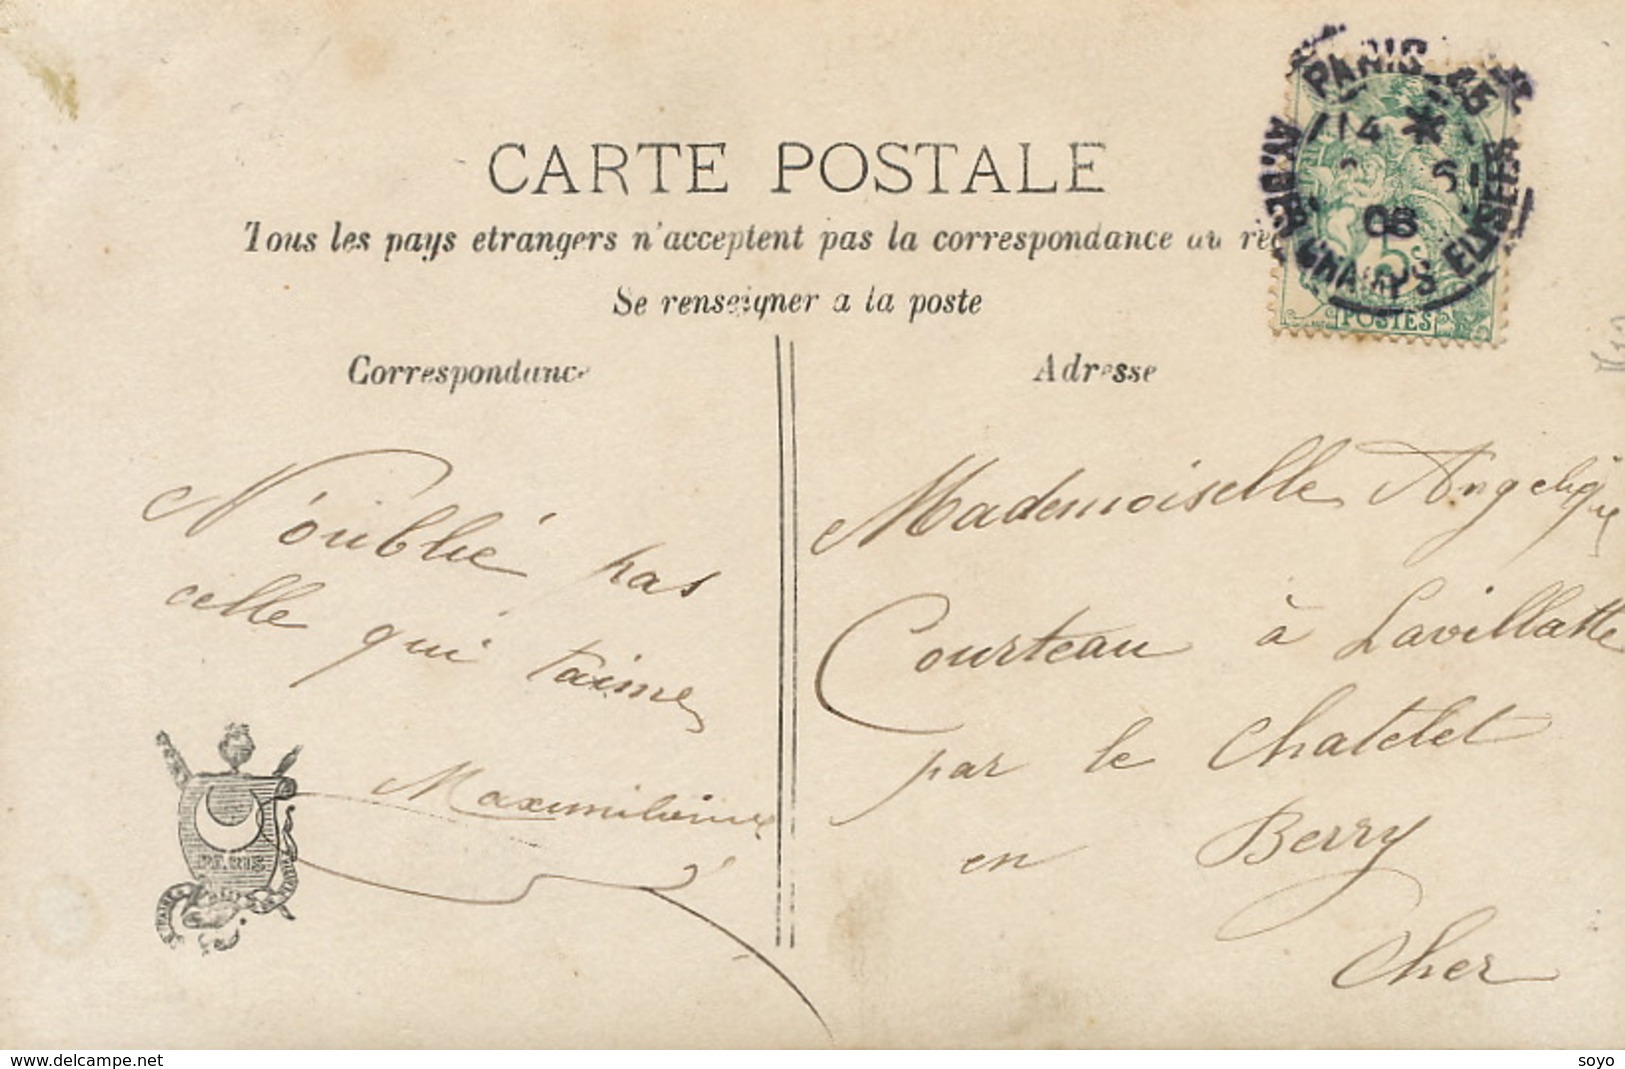 CARTE POSTALE
Tous les pays etrangers n'acceptent pas la correspondance au
Se renseigner a la poste
Correspondance
Adresse
PARIS
14 *
08
AV. DES CHAMPS ELYSEES
5c
POSTES
N'oublié pas
celle qui t'aime
Maximilienne
PARIS
Mademoiselle Angelique
Courteau à Lavillatte
par le Chatelet
en Berry
Cher
www.delcampe.net
soyo